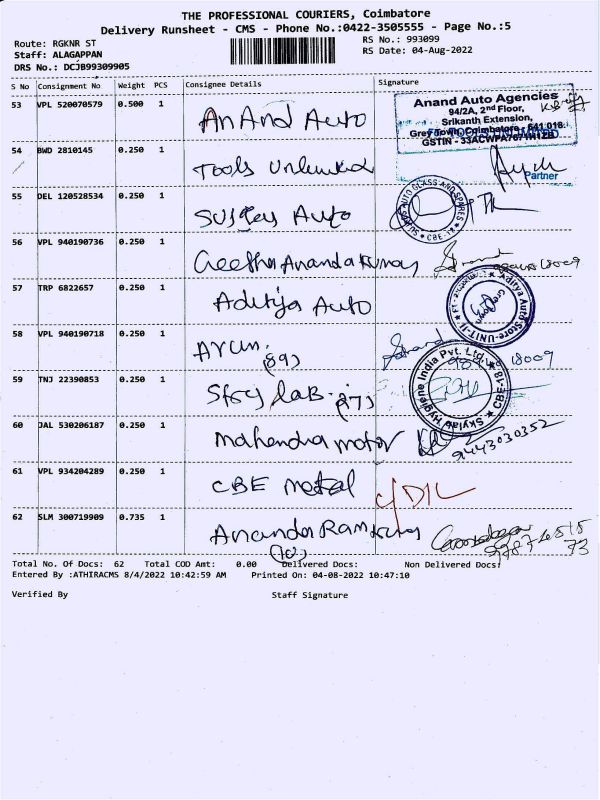 THE PROFESSIONAL COURIERS, Coimbatore
Delivery Runsheet - CMS - Phone No.:0422-3505555 - Page No.:5
Route: RGKNR ST
RS No.: 993099
Staff: ALAGAPPAN
RS Date: 04-Aug-2022
DRS No.: DCJB99309905
S No Consignment No Weight PCS Consignee Details Signature
53 VPL 520070579 0.500 1 Anand Auto
Anand Auto Agencies
94/2A, 2nd Floor,
Srikanth Extension,
Grey Town, Coimbatore - 641 018.
GSTIN - 33ACWPA7671H1ZB
54 BWD 2810145 0.250 1 Tools Unlimited
Partner
55 DEL 120528534 0.250 1 Auto
AUTO GLASS AND SPARES
CBE
56 VPL 940190736 0.250 1 Geetha Anandakumar
57 TRP 6822657 0.250 1 Aditya Auto
Aditya Auto Store-UNIT-II
58 VPL 940190718 0.250 1 Arun.
(89)
59 TNJ 22390853 0.250 1 Sky Lab.
Skylab Hygiene India Pvt. Ltd. CBE-18
60 JAL 530206187 0.250 1 Mahendra motor
9443030352
61 VPL 934204289 0.250 1 CBE metal
62 SLM 300719909 0.735 1
Total No. Of Docs: 62 Total COD Amt: 0.00 Delivered Docs: Non Delivered Docs:
Entered By :ATHIRACMS 8/4/2022 10:42:59 AM Printed On: 04-08-2022 10:47:10
Verified By Staff Signature